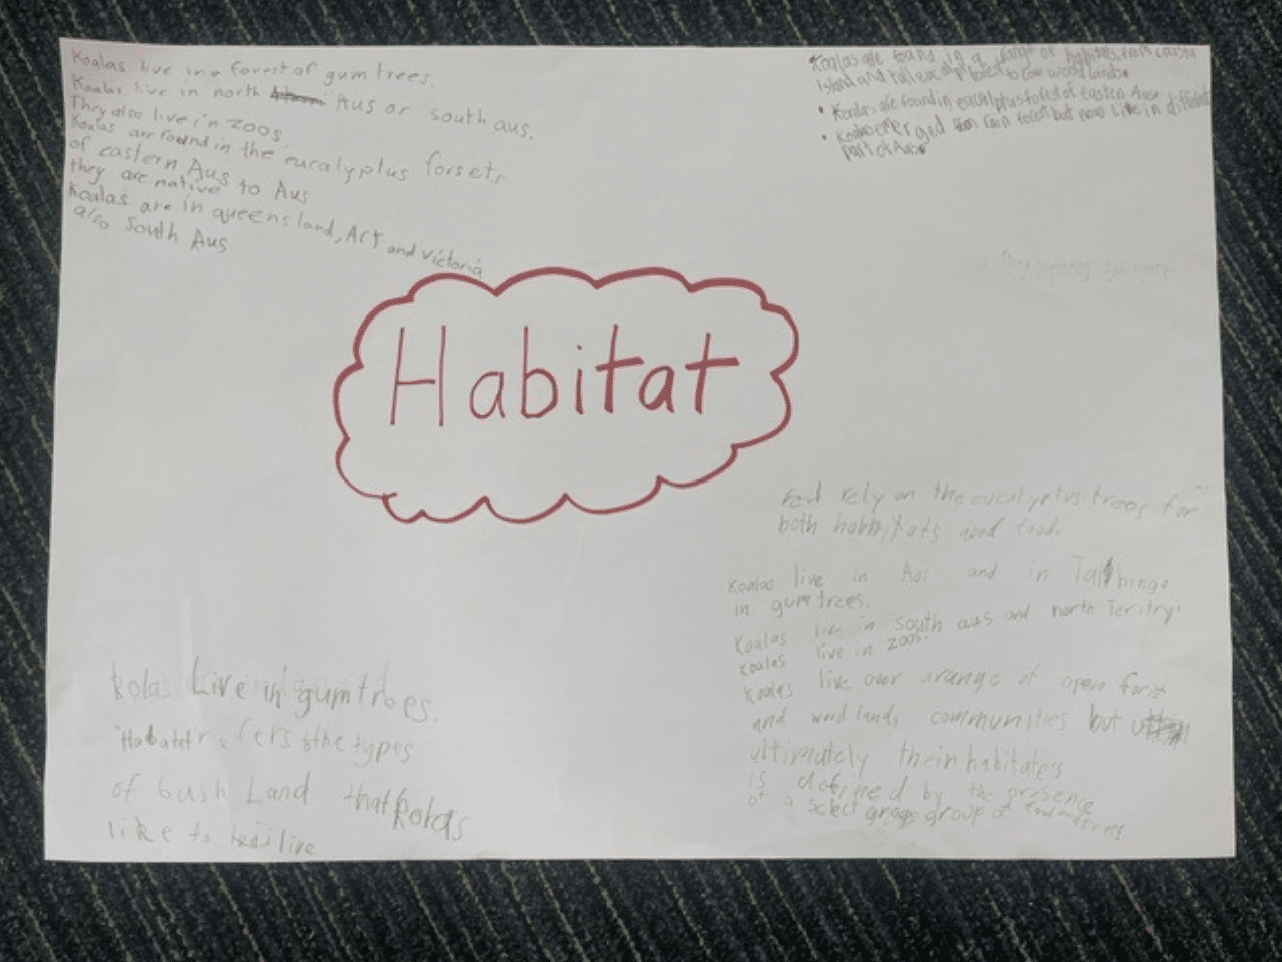 Koalas live in a forest of gum trees.
Koalas live in north Aus or south aus.
They also live in zoos.
Koalas are found in the eucalyptus forsets
of eastern Aus to Aus
they are native
Koalas are in queensland, ACT and victoria
also South Aus
Koalas are found in a range of habitats, from coastal
island and tall eucalypt forest to low woodlands.
• Koalas are found in eucalyptus forest of easten Aus.
• Koalas emerged rain forest but now live in different
part of Aus.
Habitat
rely on the eucalyptus trees for
both habbitats and food.
Koalas live in Aus and in Talbingo
in gum trees.
Koalas live in south aus and north Teritry.
Koalas live in zoos.
Koalas live over arange of open forist
and wood lands communities but
ultimately their habitates
is defined by the presence
of a select group of trees
kolas Live in gumtrees.
Habatet refers to the types
of bush Land that kolas
like to live